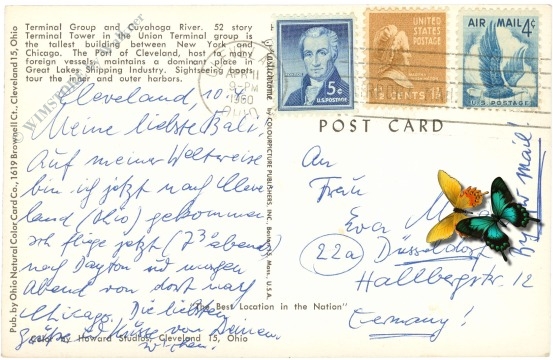 Terminal Group and Cuyohoga River. 52 story
Terminal Tower in the Union Terminal group is
the tallest building between New York and
Chicago. The Port of Cleveland, host to many
foreign vessels, maintains a dominant place in
Great Lakes Shipping Industry. Sightseeing boats
tour the inner and outer harbors.
Cleveland, 10.
Meine liebste Bali!
Auf meiner Weltreise
bin ich jetzt nach Cleve
land (Ohio) gekommen
Ich fliege jetzt (7³ abends
nach Dayton und morgen
Abend von dort nach
Chicago. Die liebsten
Grüße und Küsse von Deinem
Color by Howard Studios, Cleveland 15, Ohio
Pub. by Ohio Natural Color Card Co., 1619 Brownell Ct., Cleveland 15, Ohio
Plastichrome by COLOURPICTURE PUBLISHERS, INC., Boston 15, Mass., U.S.A.
"The Best Location in the Nation"
APR 11
9-PM
1960
OHIO
5¢
U.S. POSTAGE
UNITED
STATES
POSTAGE
1½ CENTS 1½
AIR MAIL 4¢
U.S. POSTAGE
POST CARD
An
Frau
Eva
(22a) Düsseldorf
Hallbergstr. 12
Germany!
By air mail!